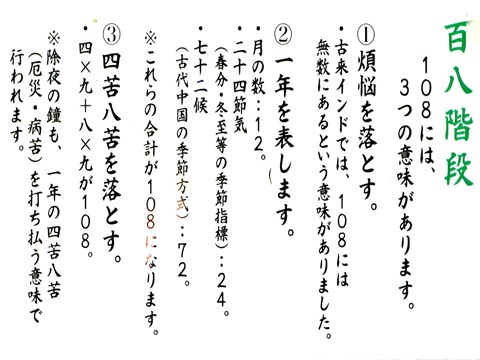 百八階段
１０８には、
３つの意味があります。
①煩悩を落とす。
・古来インドでは、１０８には
無数にあるという意味がありました。
②一年を表します。
・月の数：１２。
・二十四節気
（春分・冬至等の季節指標）：２４。
・七十二候
（古代中国の季節方式）：７２。
※これらの合計が１０８になります。
③四苦八苦を落とす。
・四×九＋八×九が１０８。
※除夜の鐘も、一年の四苦八苦
（厄災・病苦）を打ち払う意味で
行われます。